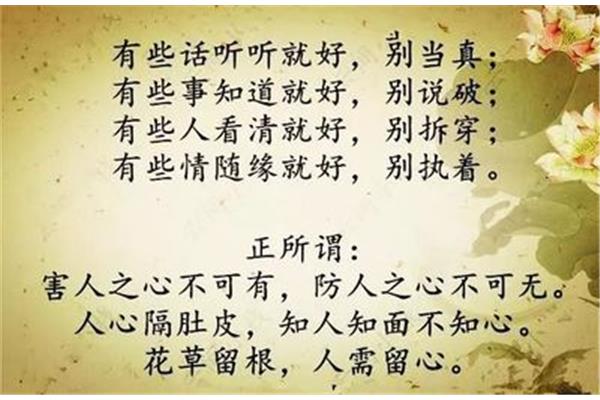 有些话听听就好，别当真；
有些事知道就好，别说破；
有些人看清就好，别拆穿；
有些情随缘就好，别执着。
正所谓：
害人之心不可有，防人之心不可无。
人心隔肚皮，知人知面不知心。
花草留根，人需留心。